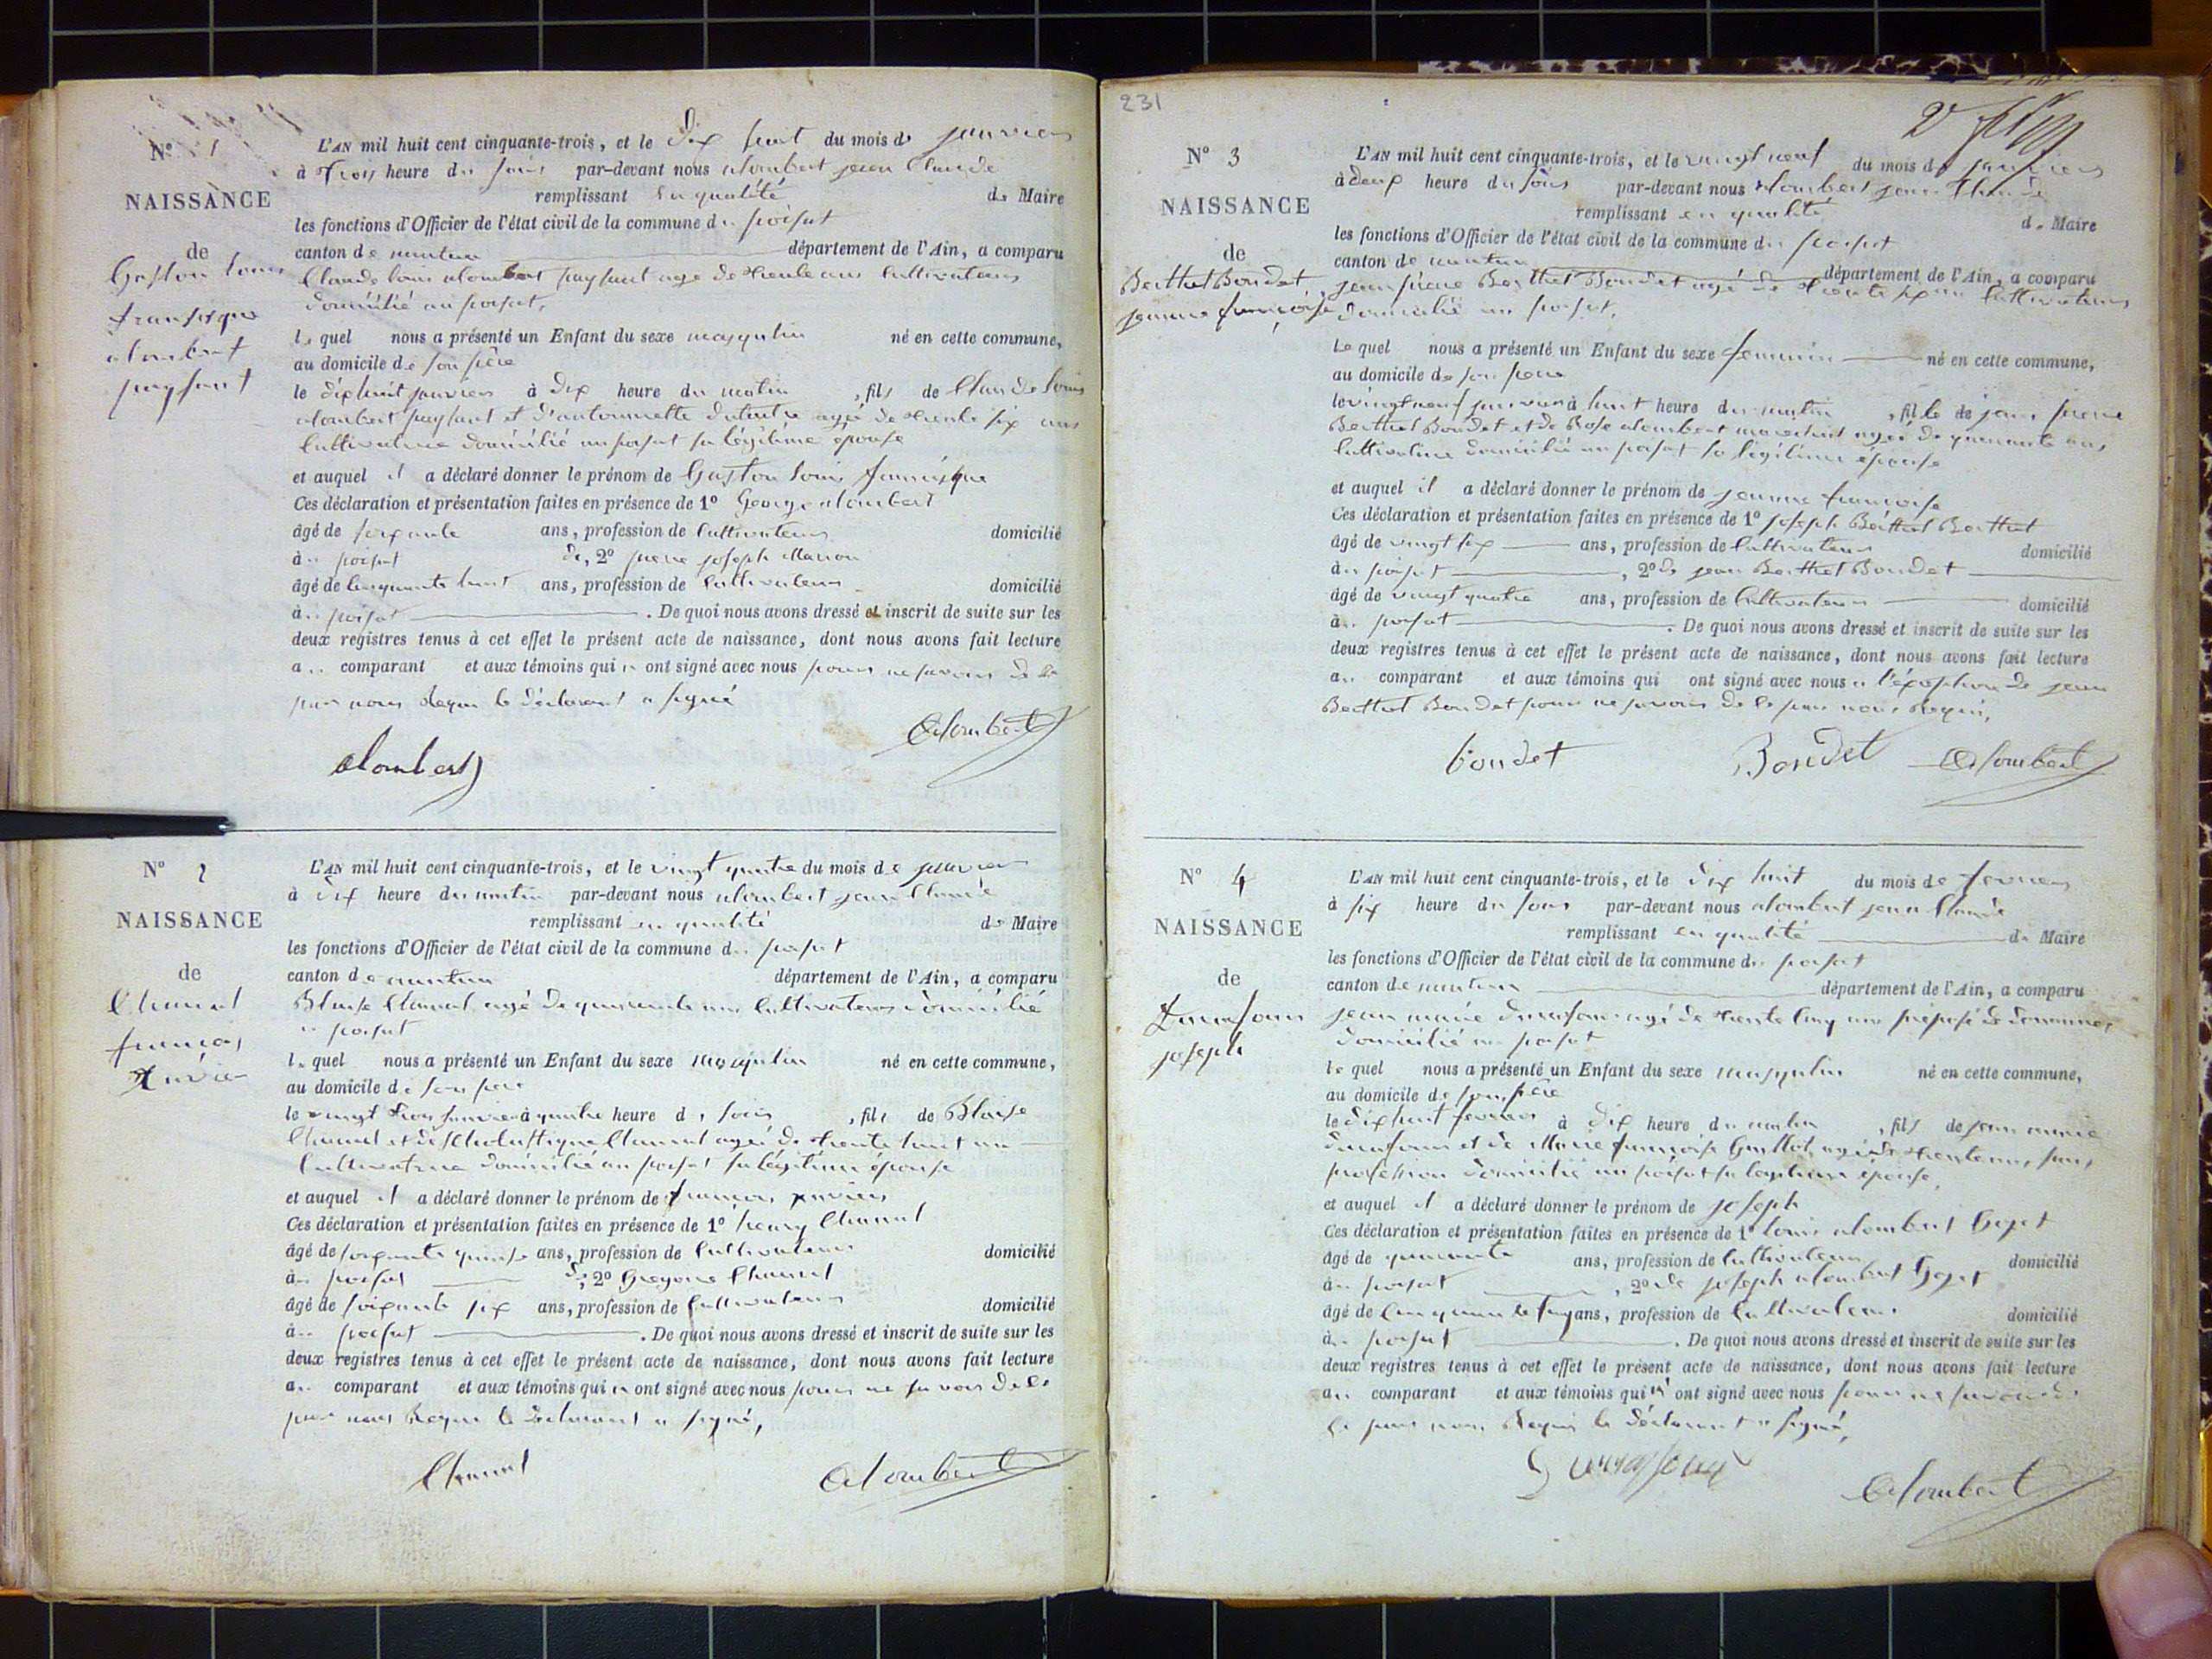 N° 1
NAISSANCE
de
Gaston Louis
fransisque
alombert
paysant
L'AN mil huit cent cinquante-trois, et le dix huit du mois de janvier
à trois heure du soir par-devant nous alombert jean Claude
remplissant en qualité de Maire
les fonctions d'Officier de l'état civil de la commune du poisat
canton de nantua département de l'Ain, a comparu
Claude louis alombert paysant agé de trente ans cultivateur
domicilié au poisat,
le quel nous a présenté un Enfant du sexe masqulin né en cette commune,
au domicile de son père
le dixhuit janvier à dix heure du matin, fils de Claude louis
alombert paysant et d'antoinnette agée de trente six ans
cultivatrice domicilié au poisat sa légitime épouse
et auquel il a déclaré donner le prénom de Gaston louis
Ces déclaration et présentation faites en présence de 1° George alombert
âgé de soixante ans, profession de cultivateur domicilié
à poisat de, 2° pierre joseph Marion
âgé de cinquante huit ans, profession de cultivateur domicilié
à poisat. De quoi nous avons dressé et inscrit de suite sur les
deux registres tenus à cet effet le présent acte de naissance, dont nous avons fait lecture
au comparant et aux témoins qui n ont signé avec nous pour ne savoir de ce
par nous Requi le déclarant a signé
alombert
Alombert
N° 2
NAISSANCE
de
Chanel
françois
Xavier
L'AN mil huit cent cinquante-trois, et le vingt quatre du mois de janvier
à dix heure du matin par-devant nous alombert jean Claude
remplissant en qualité de Maire
les fonctions d'Officier de l'état civil de la commune du poisat
canton de nantua département de l'Ain, a comparu
Blaise Chanel agé de quarante ans cultivateur domicilié
au poisat
le quel nous a présenté un Enfant du sexe masqulin né en cette commune,
au domicile de son père
le vingt trois janvier à quatre heure du soir, fils de Blaise
Chanel et de Scholastique Chanel agée de trente huit ans
cultivatrice domicilié au poisat sa légitime épouse
et auquel il a déclaré donner le prénom de françois xavier
Ces déclaration et présentation faites en présence de 1° henry Chanel
âgé de soixante quinze ans, profession de cultivateur domicilié
au poisat de, 2° Gregoire Chanel
âgé de soixante six ans, profession de cultivateur domicilié
à poisat. De quoi nous avons dressé et inscrit de suite sur les
deux registres tenus à cet effet le présent acte de naissance, dont nous avons fait lecture
au comparant et aux témoins qui n ont signé avec nous pour ne savoir de ce
par nous Requi le déclarant a signé,
Chanel
Alombert
231
N° 3
NAISSANCE
de
Berthet Bondet
jeanne françoise
L'AN mil huit cent cinquante-trois, et le vingt neuf du mois de janvier
à deux heure du soir par-devant nous alombert jean Claude
remplissant en qualité de Maire
les fonctions d'Officier de l'état civil de la commune du poisat
canton de nantua département de l'Ain, a comparu
jean pierre Berthet Bondet agé de trente six ans cultivateur
domicilié au poisat,
le quel nous a présenté un Enfant du sexe feminin né en cette commune,
au domicile de son père
le vingt neuf janvier à huit heure du matin, fille de jean pierre
Berthet Bondet et de Rose alombert agée de quarante ans,
cultivatrice domicilié au poisat sa légitime épouse
et auquel il a déclaré donner le prénom de jeanne françoise
Ces déclaration et présentation faites en présence de 1° joseph Berthet Berthet
âgé de vingt six ans, profession de cultivateur domicilié
au poisat, 2° de jean Berthet Bondet
âgé de vingt quatre ans, profession de cultivateur domicilié
à poisat. De quoi nous avons dressé et inscrit de suite sur les
deux registres tenus à cet effet le présent acte de naissance, dont nous avons fait lecture
au comparant et aux témoins qui ont signé avec nous a l'éxeption de jean
Berthet Bondet pour ne savoir de ce par nous Requi,
bondet
Bondet
Alombert
N° 4
NAISSANCE
de
joseph
L'AN mil huit cent cinquante-trois, et le dix huit du mois de fevrier
à six heure du soir par-devant nous alombert jean Claude
remplissant en qualité de Maire
les fonctions d'Officier de l'état civil de la commune du poisat
canton de nantua département de l'Ain, a comparu
jean marie agé de trente cinq ans préposé de douannes
domicilié au poisat
le quel nous a présenté un Enfant du sexe masqulin né en cette commune,
au domicile de son père
le dixhuit fevrier à dix heure du matin, fils de jean marie
et de Marie françoise Guillot, agée de trente ans, sans
profession domicilié au poisat sa légitime épouse,
et auquel il a déclaré donner le prénom de joseph
Ces déclaration et présentation faites en présence de 1° louis alombert Goget
âgé de quarante ans, profession de cultivateur domicilié
au poisat, 2° de joseph alombert Goget
âgé de cinquante ans, profession de cultivateur domicilié
à poisat. De quoi nous avons dressé et inscrit de suite sur les
deux registres tenus à cet effet le présent acte de naissance, dont nous avons fait lecture
au comparant et aux témoins qui n ont signé avec nous pour ne savoir de
ce par nous Requi le déclarant a signé,
Alombert